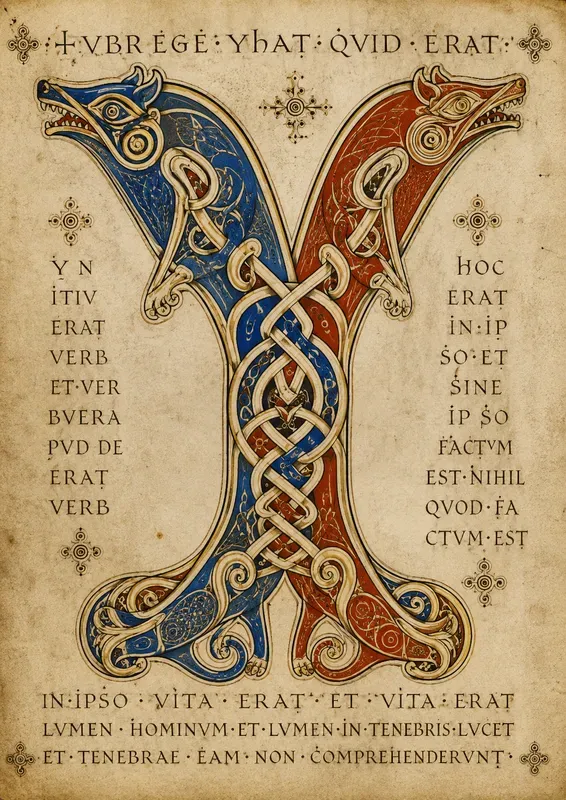 +VBR EGE · YhAT · QVID · ERAT ·
Y N
ITIV
ERAT
VERB
ET·VER
BVERA
PVD DE
ERAT
VERB
hOC
ERAT
IN·IP
SO·ET
SINE
IP SO
FACTVM
EST·NIHIL
QVOD·FA
CTVM·EST
IN·IPSO · VITA · ERAT · ET · VITA · ERAT
LVMEN · HOMINVM · ET · LVMEN · IN · TENEBRIS · LVCET
ET · TENEBRAE · EAM · NON · COMPREHENDERVNT ·